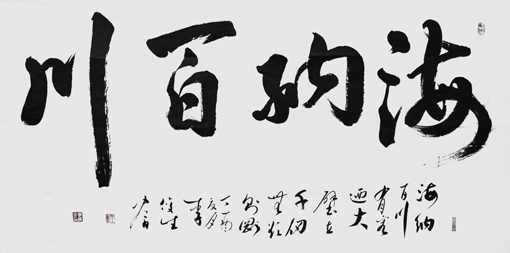 海纳百川
海纳
百川
有容
迺大
壁立
千仞
無欲
则剛